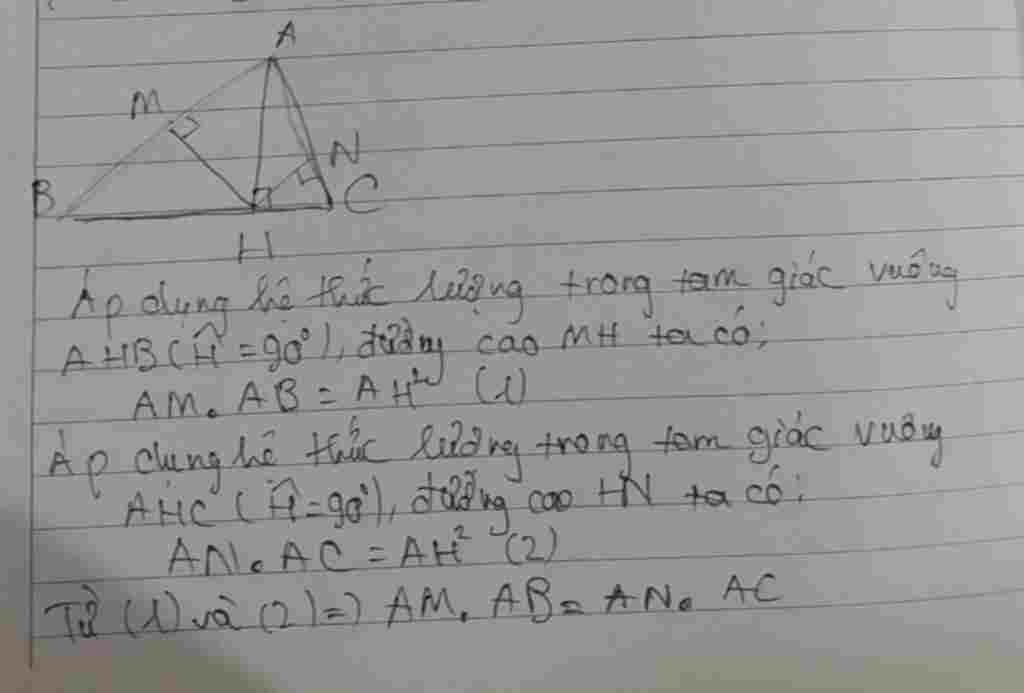 A
M
N
B
C
H
Áp dụng hệ thức lượng trong tam giác vuông
AHB (Ĥ = 90°), đường cao MH ta có:
AM. AB = AH² (1)
Áp dụng hệ thức lượng trong tam giác vuông
AHC (Ĥ = 90°), đường cao HN ta có:
AN. AC = AH² (2)
Từ (1) và (2) => AM. AB = AN. AC